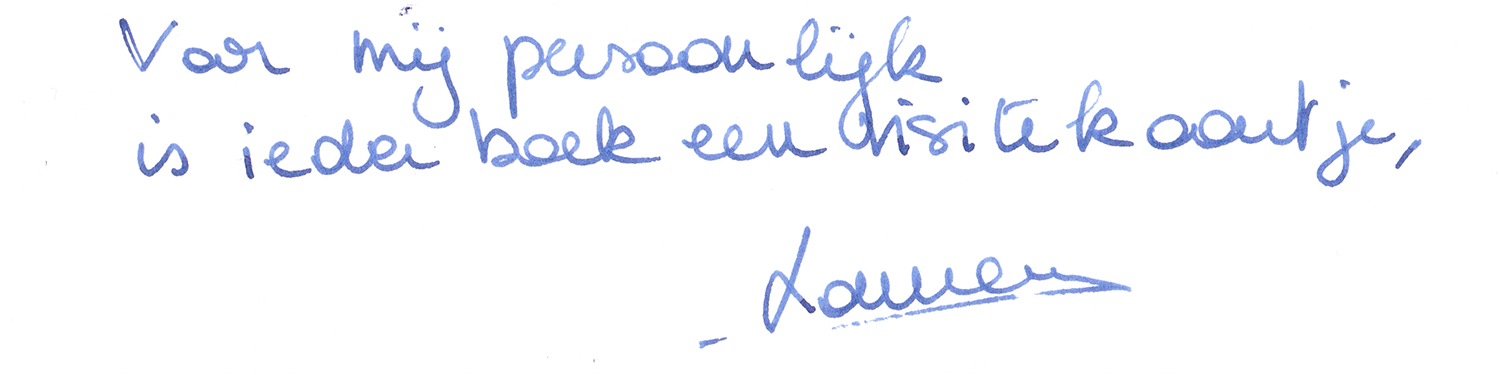 Voor mij persoonlijk
is ieder boek een visitekaartje,